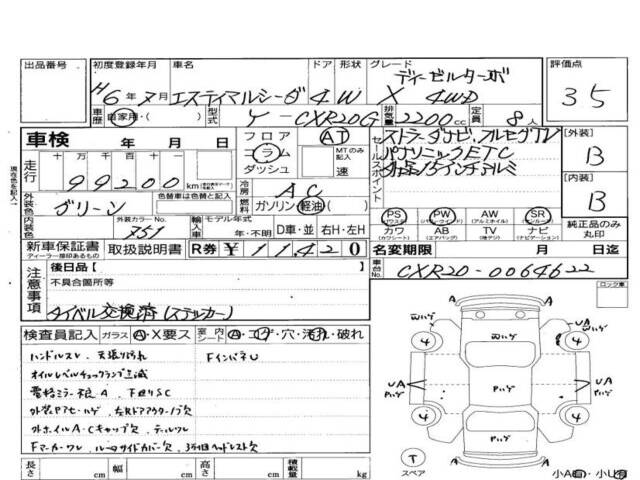 出品番号 初度登録年月 車名 ドア 形状 グレード 評価点
H6年7月 エスティマルシーダ 4 W X ディーゼルターボ 4WD 3.5
車歴 自家用・( ) 型式 Y-CXR20G 排気量 2200cc 定員 8人
車検 年 月 日
フロア コラム ダッシュ
AT MTのみ記入 速
セールスポイント
ストラーダナビ、フルセグTV
パナソニックETC
【外装】 B
【内装】 B
現在色を記入
走行 十万 万 千 百 十 99200 km
冷房 AC
外装色 グリーン
燃料 ガソリン 軽油 ( )
PS (パワステ) PW (パワーウインド) AW (アルミホイル) SR (サンルーフ)
カワ (カワシート) AB (エアバッグ) TV (地デジ) ナビ (ナビゲーション)
純正品のみ丸印
内装色 外装カラーNo. 751
輸入車 モデル年式 年・不明 D車・並 右H・左H
新車保証書 ディーラー印あるもの 取扱説明書 R券 ¥11420
名変期限 月 日迄
注意事項 後日品【 】
不具合箇所等
タイベル交換済(ステッカー)
車台No. CXR20-0064622
ロック車
検査員記入 ガラス A・X要ス 室内シート A・コゲ・穴・汚れ・破れ
ハンドルスレ、天張り汚れ
FインパネU
オイルレベルチェックランプ点滅
電格ミラー
下廻りSC
外装
外ホイルA・Cキャップ欠、
Fマーカーワレ、ルーフサイドカバー欠、3列目ヘッドレスト欠
4 4
UA Pハゲ Pハゲ Pハゲ UA
4 4
Pハゲ
T
スペア
小A有・小U有
長さ cm 幅 cm 高さ cm 積載量 kg